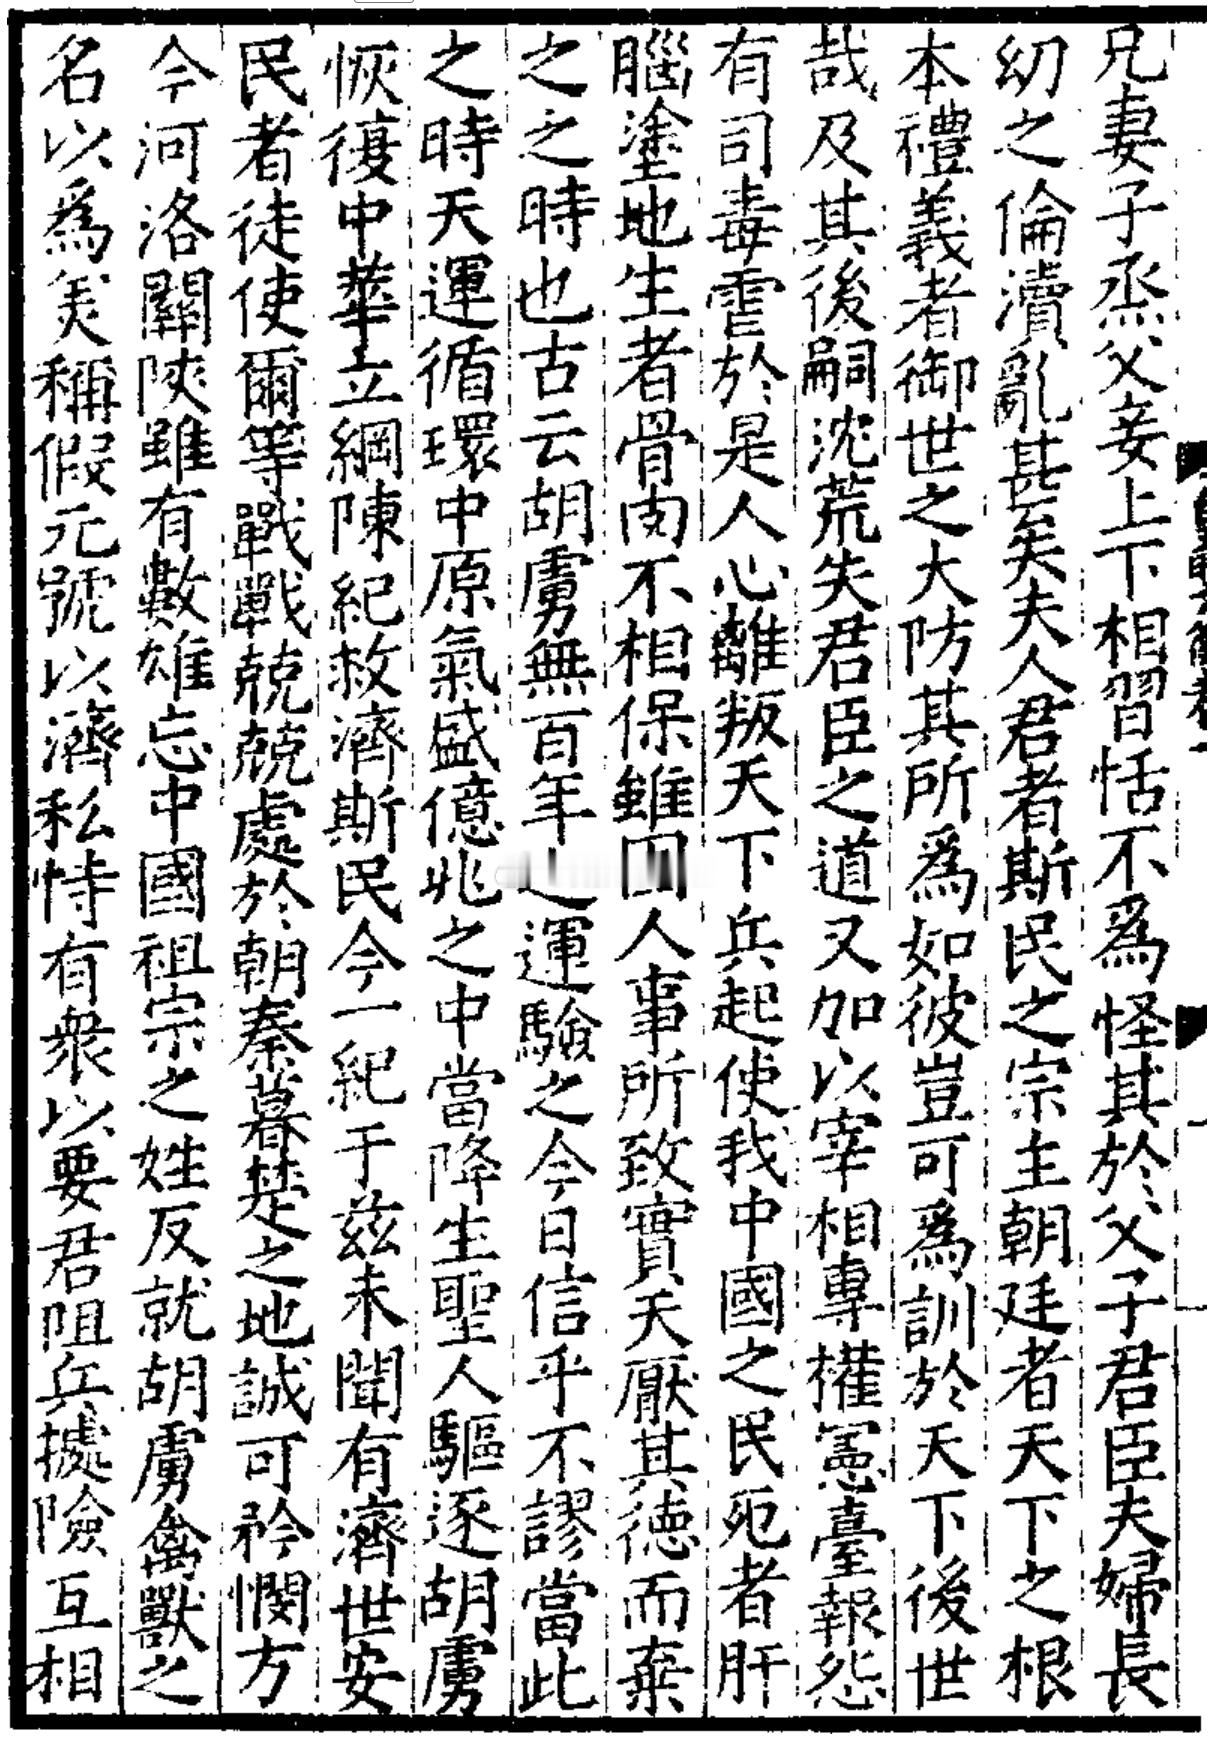 兄妻子烝父妾上下相習恬不爲怪其於父子君臣夫婦長
幼之倫瀆亂甚矣夫人君者斯民之宗主朝廷者天下之根
本禮義者御世之大防其所爲如彼豈可爲訓於天下後世
哉及其後嗣沈荒失君臣之道又加以宰相專權憲臺報怨
有司毒虐於是人心離叛天下兵起使我中國之民死者肝
腦塗地生者骨肉不相保雖因人事所致實天厭其德而棄
之之時也古云胡虜無百年之運驗之今日信乎不謬當此
之時天運循環中原氣盛億兆之中當降生聖人驅逐胡虜
恢復中華立綱陳紀救濟斯民今一紀于茲未聞有濟世安
民者徒使爾等戰戰兢兢處於朝秦暮楚之地誠可矜憫方
今河洛關陝雖有數雄忘中國祖宗之姓反就胡虜禽獸之
名以爲美稱假元號以濟私恃有衆以要君阻兵據險互相